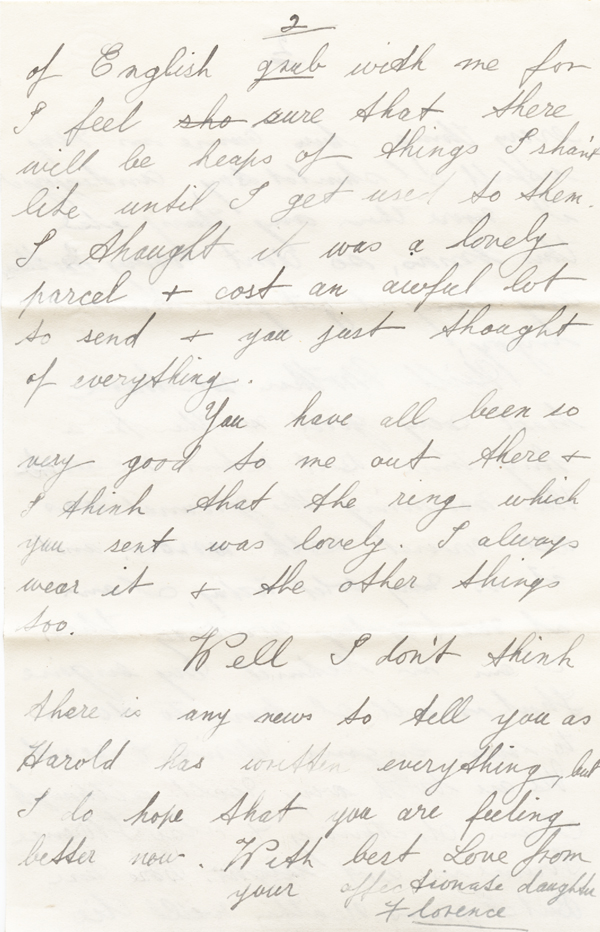 2
of English grub with me for
I feel sho sure that there
will be heaps of things I shan't
like until I get used to them.
I thought it was a lovely
parcel + cost an awful lot
to send + you just thought
of everything.
You have all been so
very good to me out there +
I think that the ring which
you sent was lovely. I always
wear it + the other things
too.
Well I don't think
there is any news to tell you as
Harold has written everything, but
I do hope that you are feeling
better now. With best Love from
your affectionate daughter
Florence